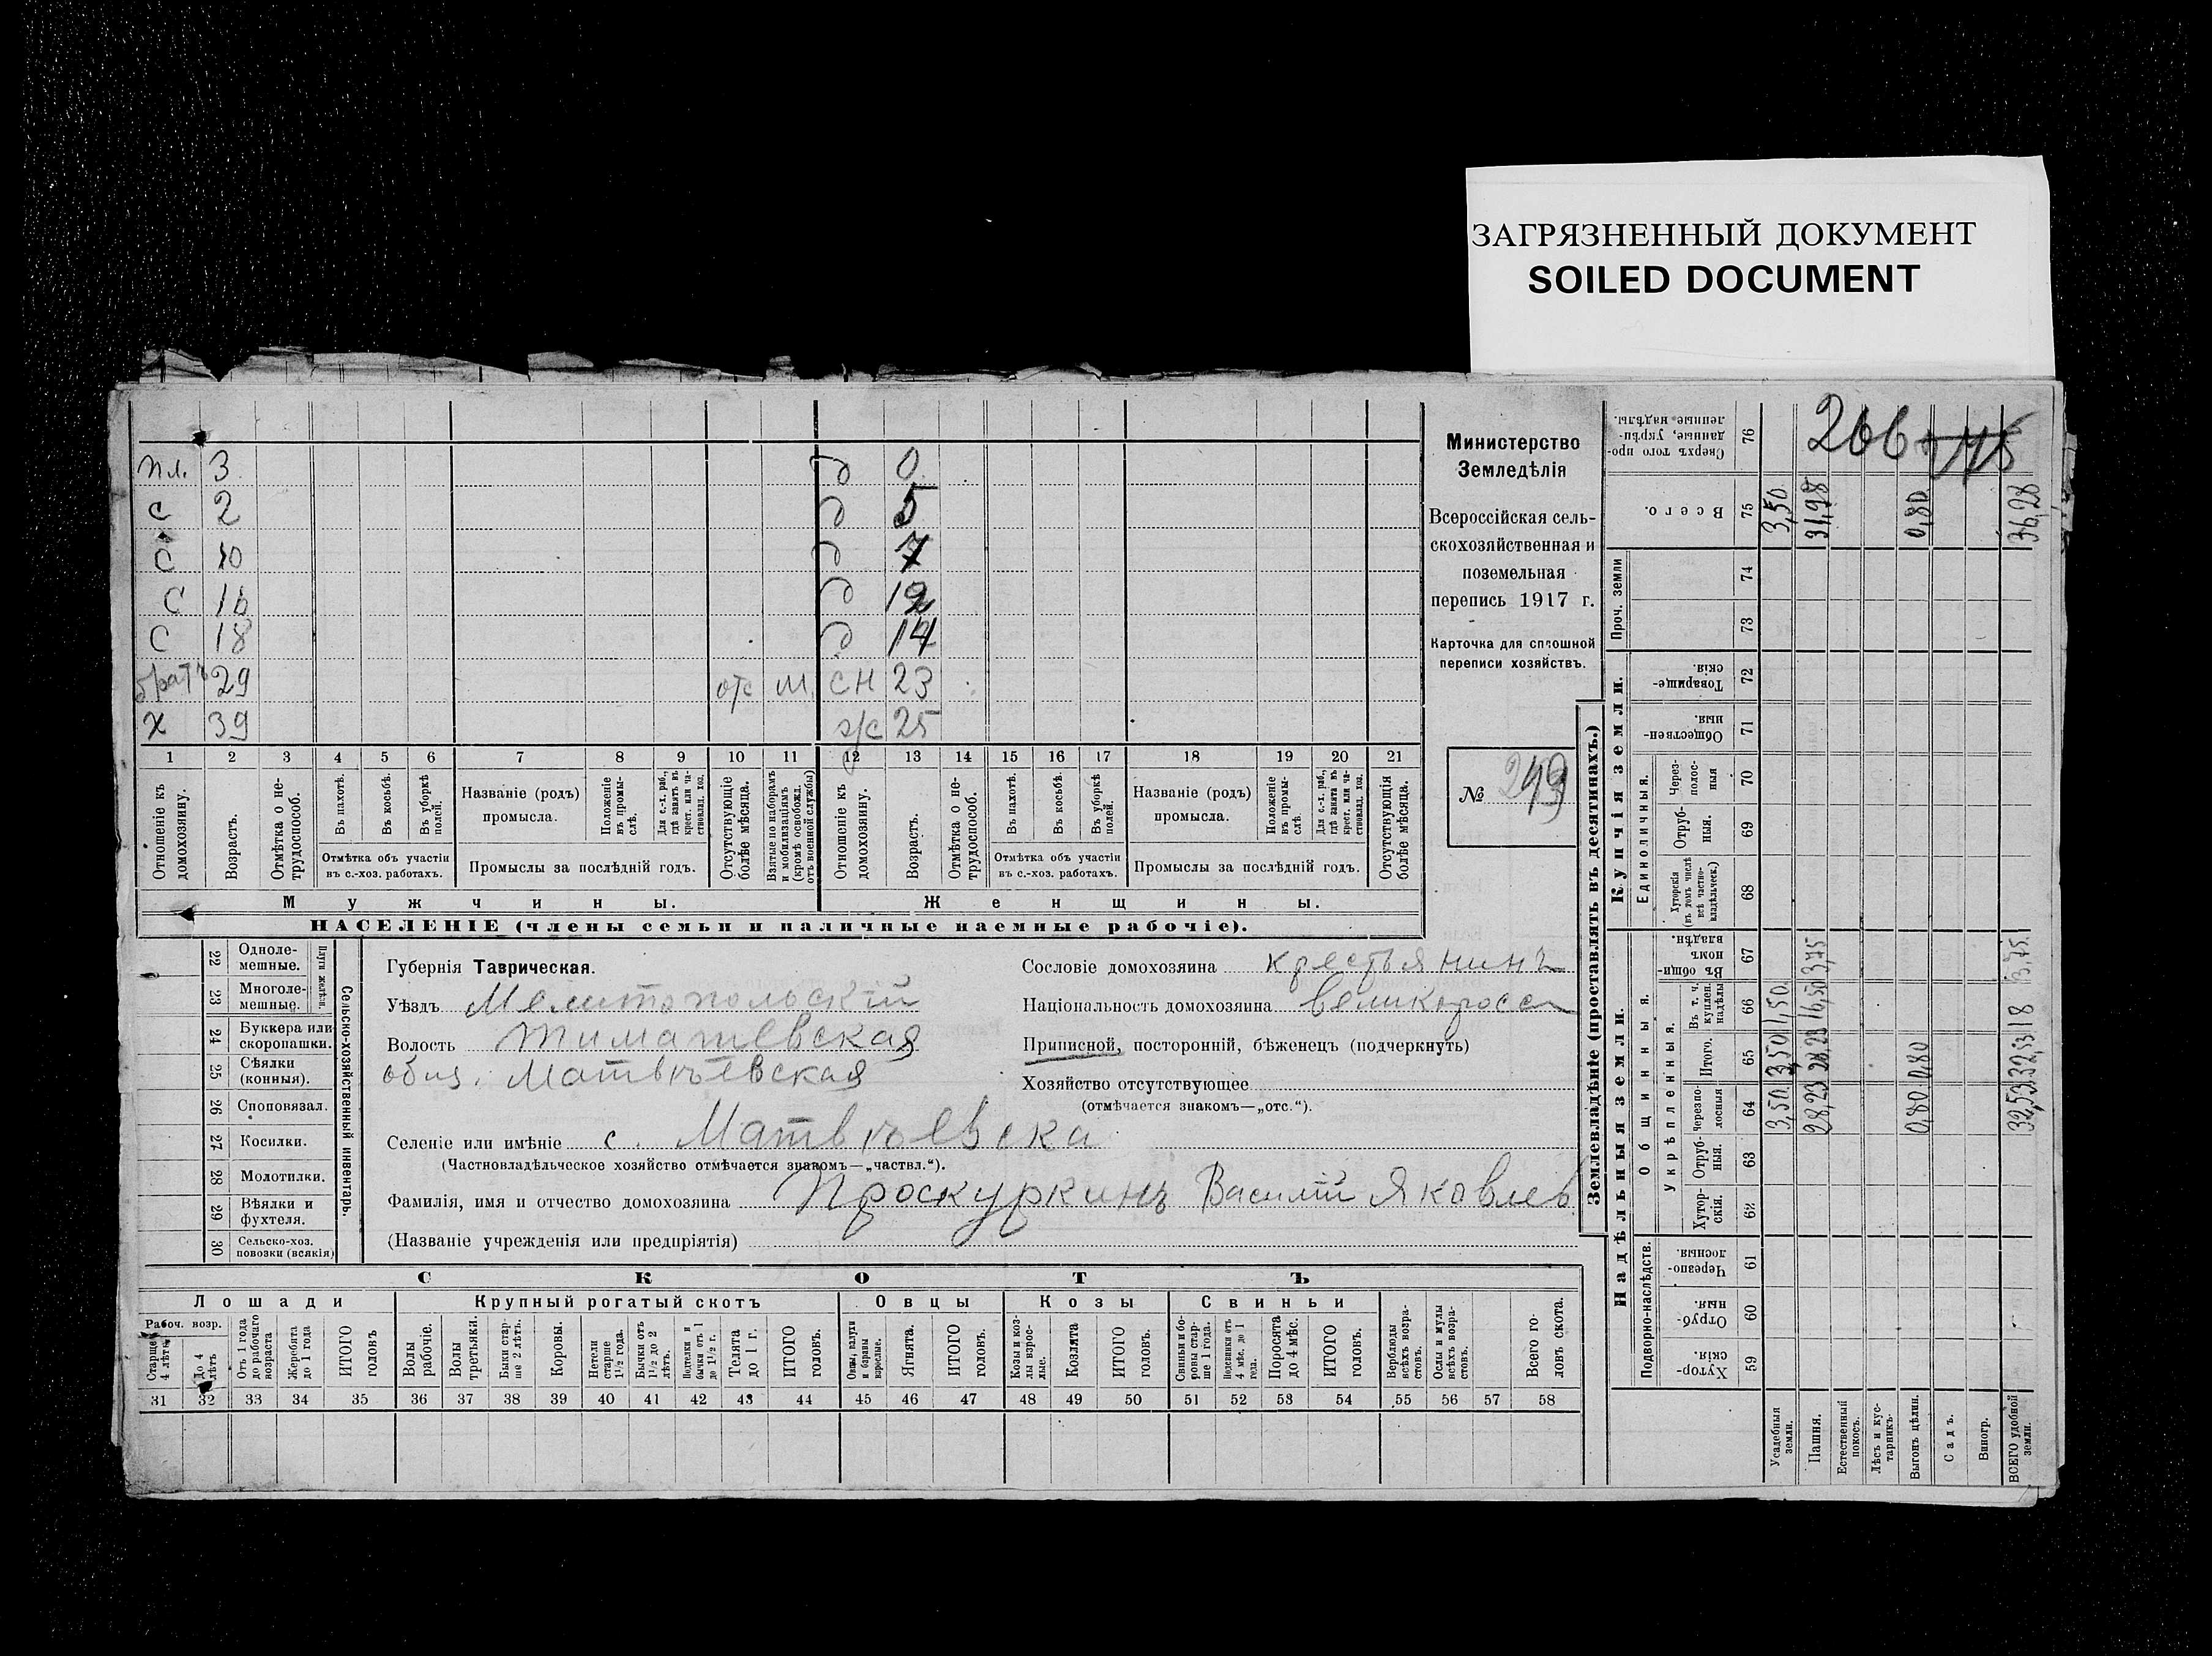 ЗАГРЯЗНЕННЫЙ ДОКУМЕНТ
SOILED DOCUMENT
пл. 3 д 0
с 2 д 5
с 10 д 7
с 16 д 12
с 18 д 14
братъ 29 отс м. сн 23
х 39 25
1 2 3 4 5 6 7 8 9 10 11 12 13 14 15 16 17 18 19 20 21
Отношеніе къ домохозяину.
Возрастъ.
Отмѣтка о не-трудоспособ.
Въ пахотѣ.
Въ косьбѣ.
Въ уборкѣ полей.
Отмѣтка объ участіи
въ с.-хоз. работахъ.
Названіе (родъ)
промысла.
Положеніе въ промы-слѣ.
Для с.-х. раб., гдѣ занятъ въ крест. или ча-стновлад. хоз.
Промыслы за послѣдній годъ.
Отсутствующіе болѣе мѣсяца.
Взятые по наборамъ и мобилизаціямъ (кромѣ освобожд. отъ военной службы)
Отношеніе къ домохозяину.
Возрастъ.
Отмѣтка о не-трудоспособ.
Въ пахотѣ.
Въ косьбѣ.
Въ уборкѣ полей.
Отмѣтка объ участіи
въ с.-хоз. работахъ.
Названіе (родъ)
промысла.
Положеніе въ промы-слѣ.
Для с.-х. раб., гдѣ занята въ крест. или ча-стновлад. хоз.
Промыслы за послѣдній годъ.
Отсутствующія болѣе мѣсяца.
Мужчины.
Женщины.
НАСЕЛЕНІЕ (члены семьи и наличные наемные рабочіе).
Министерство
Земледѣлія
Всероссійская сель-
скохозяйственная и
поземельная
перепись 1917 г.
Карточка для сплошной
переписи хозяйствъ.
№ 249
22 Одноле-мешные.
23 Многоле-мешные.
Плуги желѣзн.
24 Буккера или скоропашки.
25 Сѣялки (конныя).
26 Сноповязал.
27 Косилки.
28 Молотилки.
29 Вѣялки и фухтеля.
30 Сельско-хоз. повозки (всякія)
Сельско-хозяйственный инвентарь.
Губернія Таврическая.
Уѣздъ Мелитопольскій
Волость Тимашевская
общ. Матвѣевская
Селеніе или имѣніе с. Матвѣевка
(Частновладѣльческое хозяйство отмѣчается знакомъ—„частвл.“).
Фамилія, имя и отчество домохозяина Проскуркинъ Василій Яковлев
(Названіе учрежденія или предпріятія)
Сословіе домохозяина крестьянинъ
Національность домохозяина великоросс
Приписной, посторонній, бѣженецъ (подчеркнуть)
Хозяйство отсутствующее
(отмѣчается знакомъ—„отс.“).
СКОТЪ
Лошади
Крупный рогатый скотъ
Овцы
Козы
Свиньи
Рабоч. возр.
Старше 4 лѣтъ
До 4 лѣтъ
Отъ 1 года до рабочаго возраста
Жеребята до 1 года
ИТОГО головъ
Волы рабочіе.
Волы третьяки.
Быки стар-ше 2 лѣтъ.
Коровы.
Нетели старше 1½ года.
Бычки отъ 1½ до 2 лѣтъ.
Подтелки и бычки отъ 1 до 1½ г.
Телята до 1 г.
ИТОГО головъ.
Овцы, валухи и бараны взрослые.
Ягнята.
ИТОГО головъ.
Козы и коз-лы взрос-лые.
Козлята
ИТОГО головъ.
Свиньи и бо-ровы стар-ше 1 года.
Подсвинки отъ 4 мѣс. до 1 года.
Поросята до 4 мѣс.
ИТОГО головъ.
Верблюды всѣхъ возра-стовъ.
Ослы и мулы всѣхъ возра-стовъ.
Всего го-ловъ скота.
31 32 33 34 35 36 37 38 39 40 41 42 43 44 45 46 47 48 49 50 51 52 53 54 55 56 57 58
Землевладѣніе (проставлять въ десятинахъ.)
266
Сверхъ того про-данные, укрѣп-ленные надѣлы. 76
Всего. 75 3,50 31,98 0,80 36,28
Проч. земли
74
73
Купчія земли.
Товарище-скія. 72
Обществен-ныя. 71
Единоличныя.
Через-полос-ныя 70
Отруб-ныя. 69
Хуторскія (въ томъ числѣ всѣ частно-владѣльческ.) 68
Надѣльныя земли.
Общинныя.
Въ общин-номъ владѣн. 67 3,75 3,75
Укрѣпленныя.
Въ т. ч. куплен. надѣлы 66 1,50 16,50 18
Итого. 65 3,50 28,23 0,80 32,53
Черезпо-лосныя 64 3,50 28,23 0,80 32,53
Отруб-ныя. 63
Хутор-скія. 62
Подворно-наслѣдств.
Черезпо-лосныя. 61
Отруб-ныя. 60
Хутор-скія. 59
Усадебныя земли.
Пашня.
Естественный покосъ.
Лѣсъ и кус-тарникъ.
Выгонъ цѣлин.
Садъ.
Виногр.
ВСЕГО удобной земли.